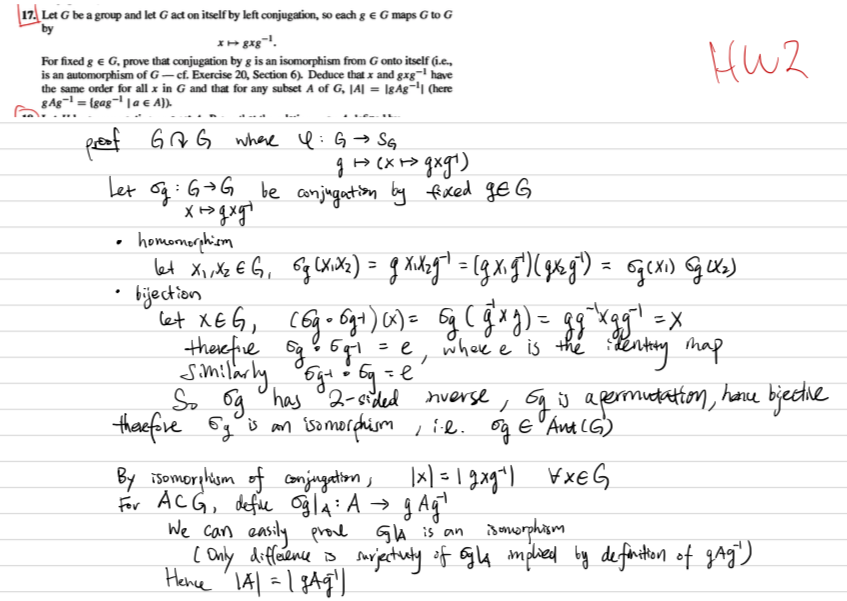 17. Let G be a group and let G act on itself by left conjugation, so each g ∈ G maps G to G
by
x ↦ gxg⁻¹.
For fixed g ∈ G, prove that conjugation by g is an isomorphism from G onto itself (i.e.,
is an automorphism of G — cf. Exercise 20, Section 6). Deduce that x and gxg⁻¹ have
the same order for all x in G and that for any subset A of G, |A| = |gAg⁻¹| (here
gAg⁻¹ = {gag⁻¹ | a ∈ A}).
HW2
proof G ↷ G where φ : G → S_G
g ↦ (x ↦ gxg⁻¹)
Let σg : G → G be conjugation by fixed g ∈ G
x ↦ gxg⁻¹
• homomorphism
let x₁, x₂ ∈ G, σg(x₁x₂) = g x₁x₂g⁻¹ = (g x₁g⁻¹)(gx₂g⁻¹) = σg(x₁) σg(x₂)
• bijection
let x ∈ G, (σg ∘ σg⁻¹)(x) = σg(g⁻¹xg) = gg⁻¹xgg⁻¹ = x
therefore σg ∘ σg⁻¹ = e, where e is the identity map
similarly σg⁻¹ ∘ σg = e
So σg has 2-sided inverse, σg is a permutation, hence bijective
therefore σg is an isomorphism, i.e. σg ∈ Aut(G)
By isomorphism of conjugation, |x| = |gxg⁻¹| ∀x∈G
For A⊂G, define σg|A : A → gAg⁻¹
We can easily prove σg|A is an isomorphism
(Only difference is surjectivity of σg|A implied by definition of gAg⁻¹)
Hence |A| = |gAg⁻¹|